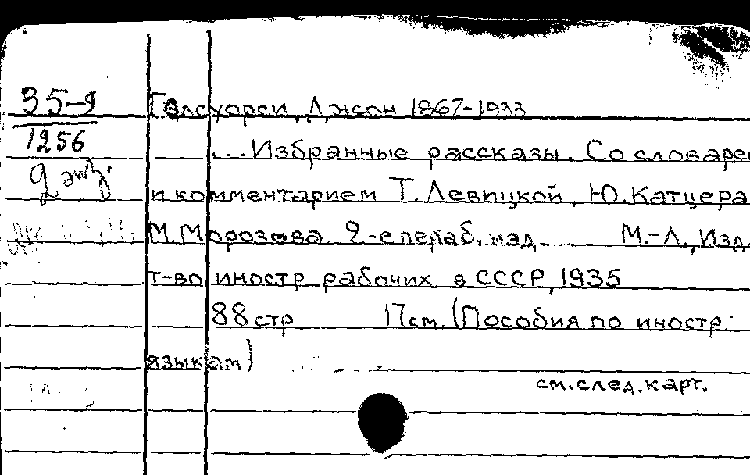 35-9
1256
2 экз.
Голсуорси, Джон 1867-1933
... Избранные рассказы. Со словарем
и комментарием Т. Левицкой, Ю. Катцера
М. Морозова 2-е перераб. изд. М.-Л., Изд
т-во иностр рабочих в СССР, 1935
88 стр 17 см. (Пособия по иностр.
языкам)
см. след. карт.